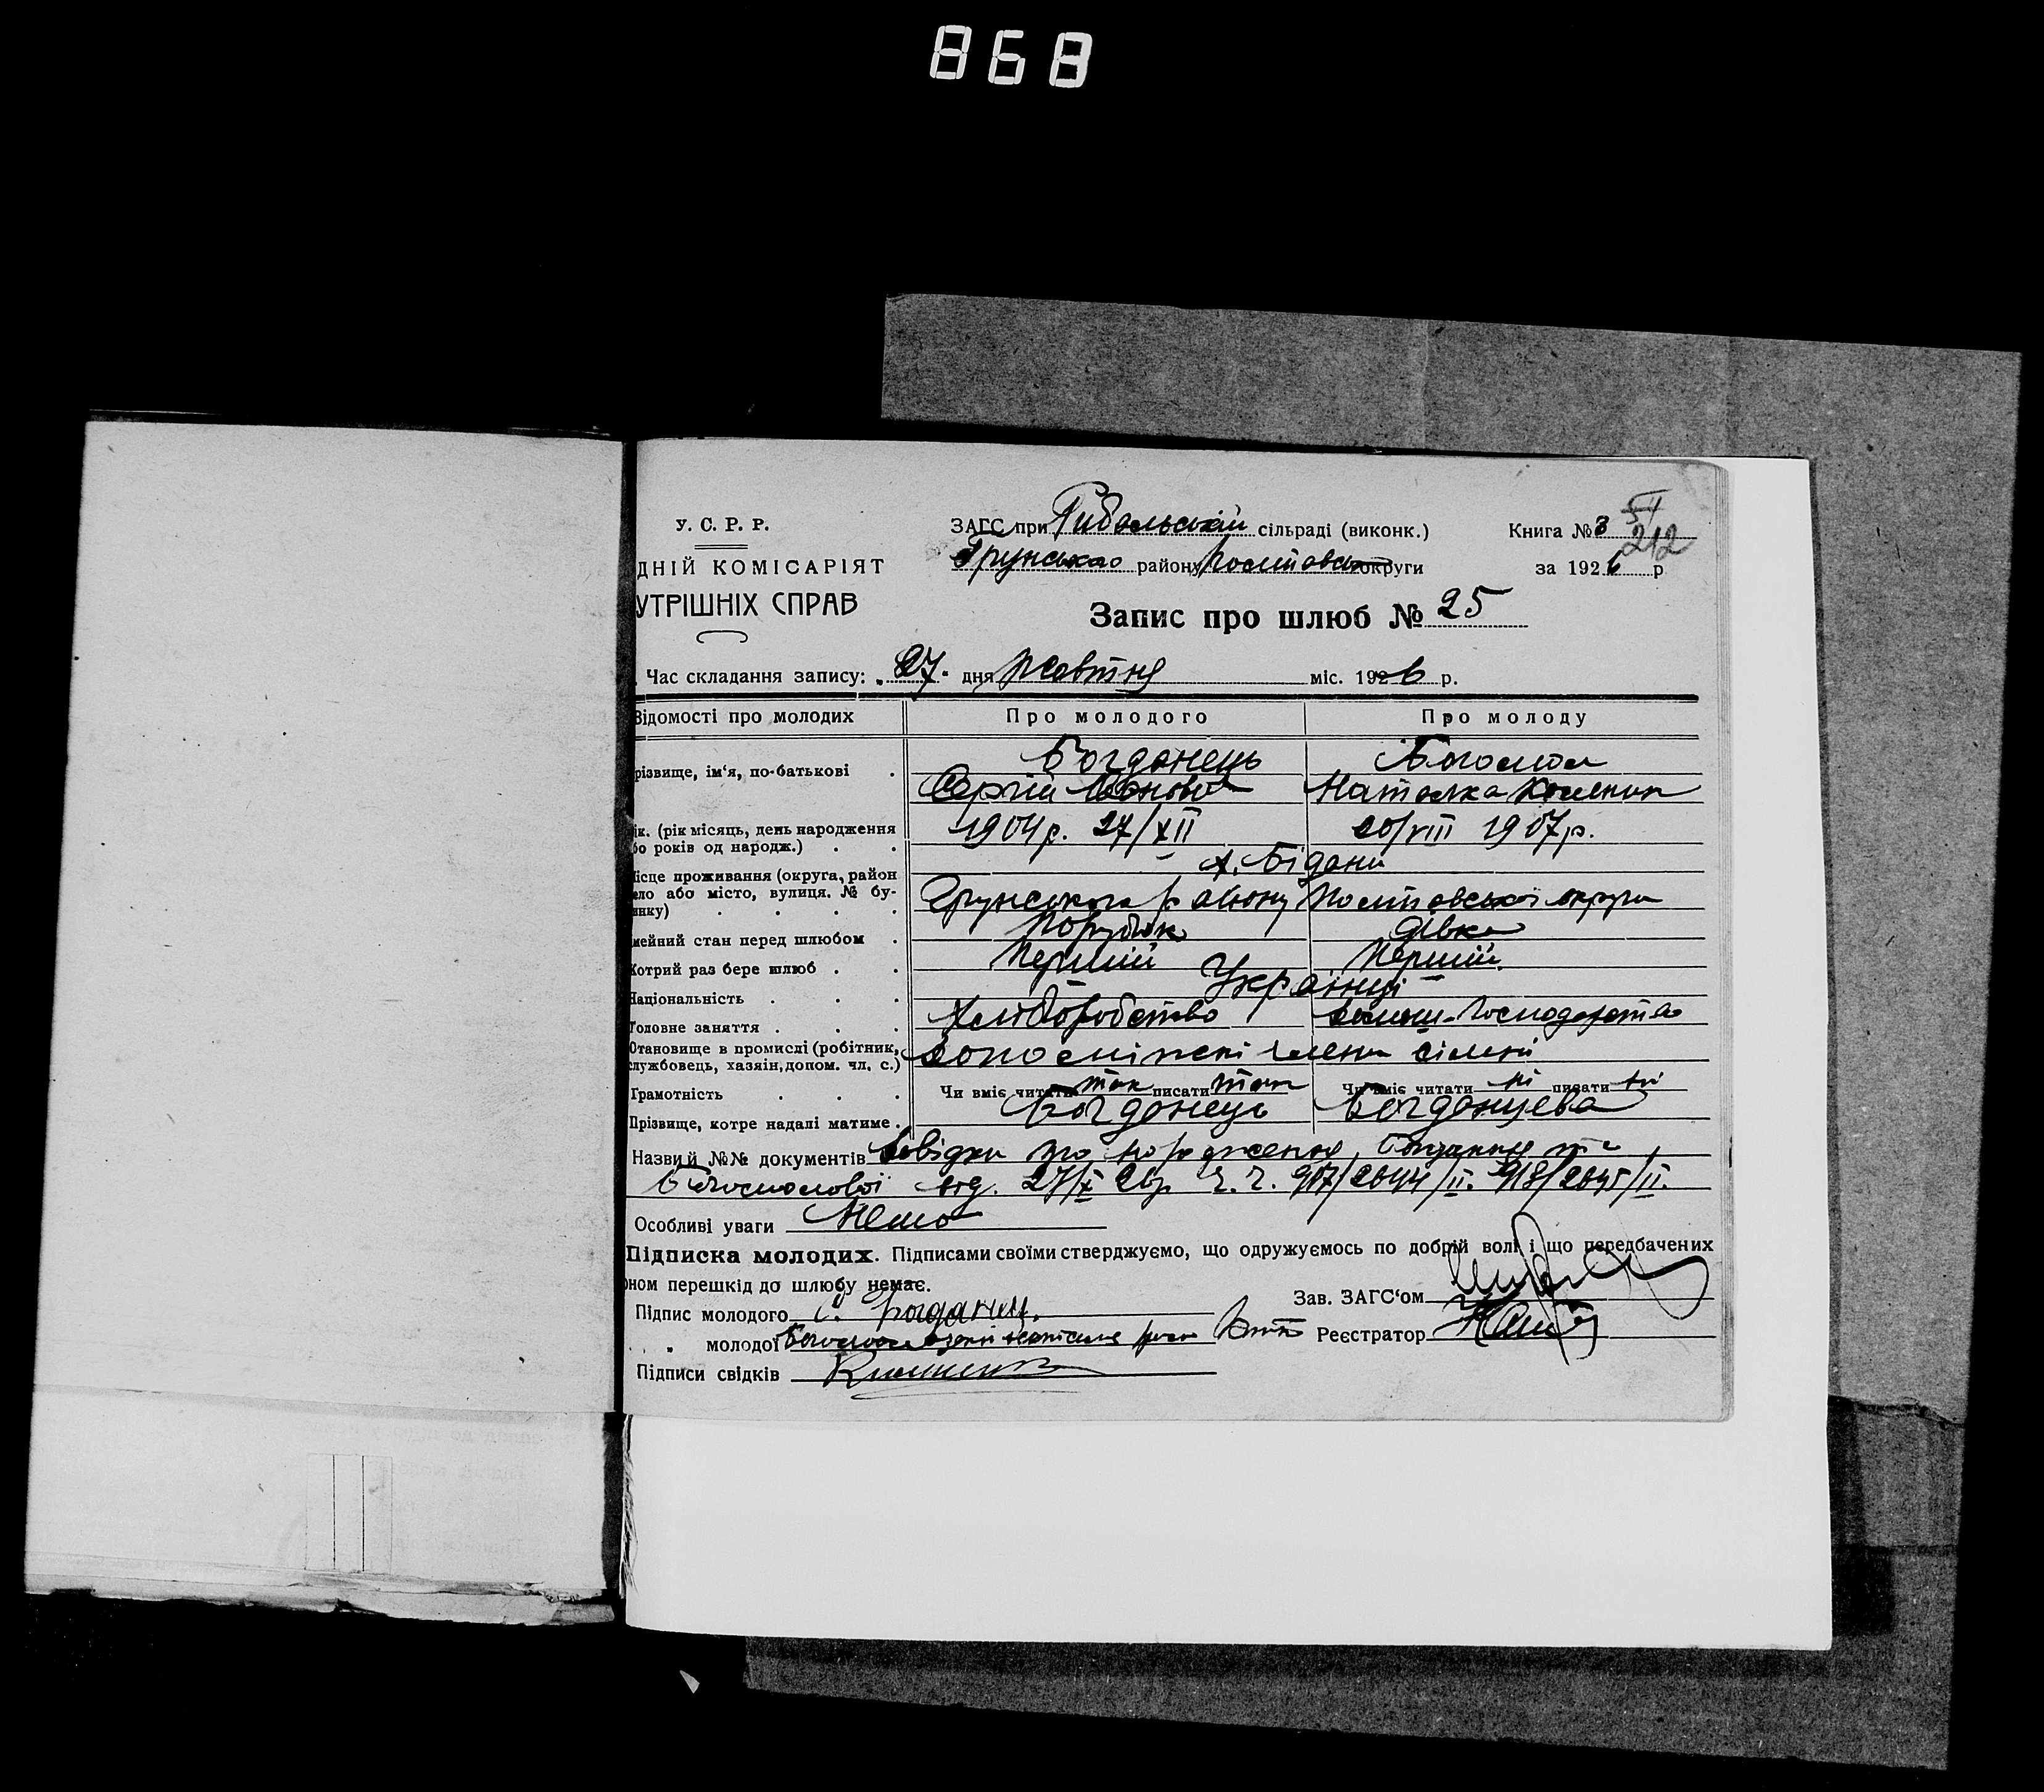 868
У. С. Р. Р.
ДНІЙ КОМІСАРІЯТ
УТРІШНІХ СПРАВ
ЗАГС при Рибальській сільраді (виконк.)
Грунського району Полтавської округи
Книга № 3
54
212
за 1926 р
Запис про шлюб № 25
Час складання запису: „27" дня жовтня міс. 1926 р.
Відомості про молодих
Про молодого
Про молоду
різвище, ім'я, по-батькові .
Богданець
Богомол
Сергій Іванов
Наталка
ік. (рік місяць, день народження
бо років од народж.) . .
1904 р. 27/XII
20/VIII 1907 р.
ісце проживання (округа, район
ело або місто, вулиця. № бу-
инку) . . . .
х. Бідани
Грунського району Полтавської округи
мейний стан перед шлюбом .
Парубок
дівка
Котрий раз бере шлюб . .
Перший
Перший
Національність . . .
Українці
Головне заняття . . .
Хліборобство
Становище в промислі (робітник,
службовець, хазяїн, допом. чл. с.)
допоміжні члени сімьї
Грамотність . . .
Чи вміє читати так писати так
Чи вміє читати ні писати ні
Прізвище, котре надалі матиме .
Богданець
Богданцева
Назви й №№ документів Довідки про народження, Богданця та
Богомолової від. 27/X 26 р. ч. ч. 917/2644/II. 918/2645/II.
Особливі уваги Нема
Підписка молодих. Підписами своїми стверджуємо, що одружуємось по добрій волі і що передбачених
оном перешкід до шлюбу немає.
Підпис молодого С. Богданец.
„ „ молодої Богомол
Підписи свідків
Зав. ЗАГС'ом
Реєстратор